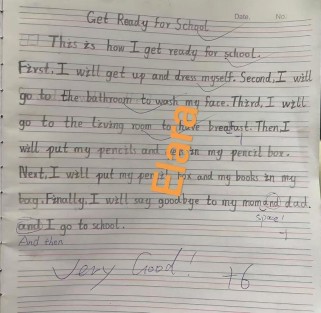 Get Ready For School
Date. No.
This is how I get ready for school.
First, I will get up and dress myself. Second, I will
go to the bathroom to wash my face. Third, I will
go to the living room to have breafast. Then, I
will put my pencils and pen in my pencil box.
Next, I will put my pencil box and my books in my
bag. Finally, I will say goodbye to my momand dad.
space!
and I go to school.
And then
Very Good! +6
Elara